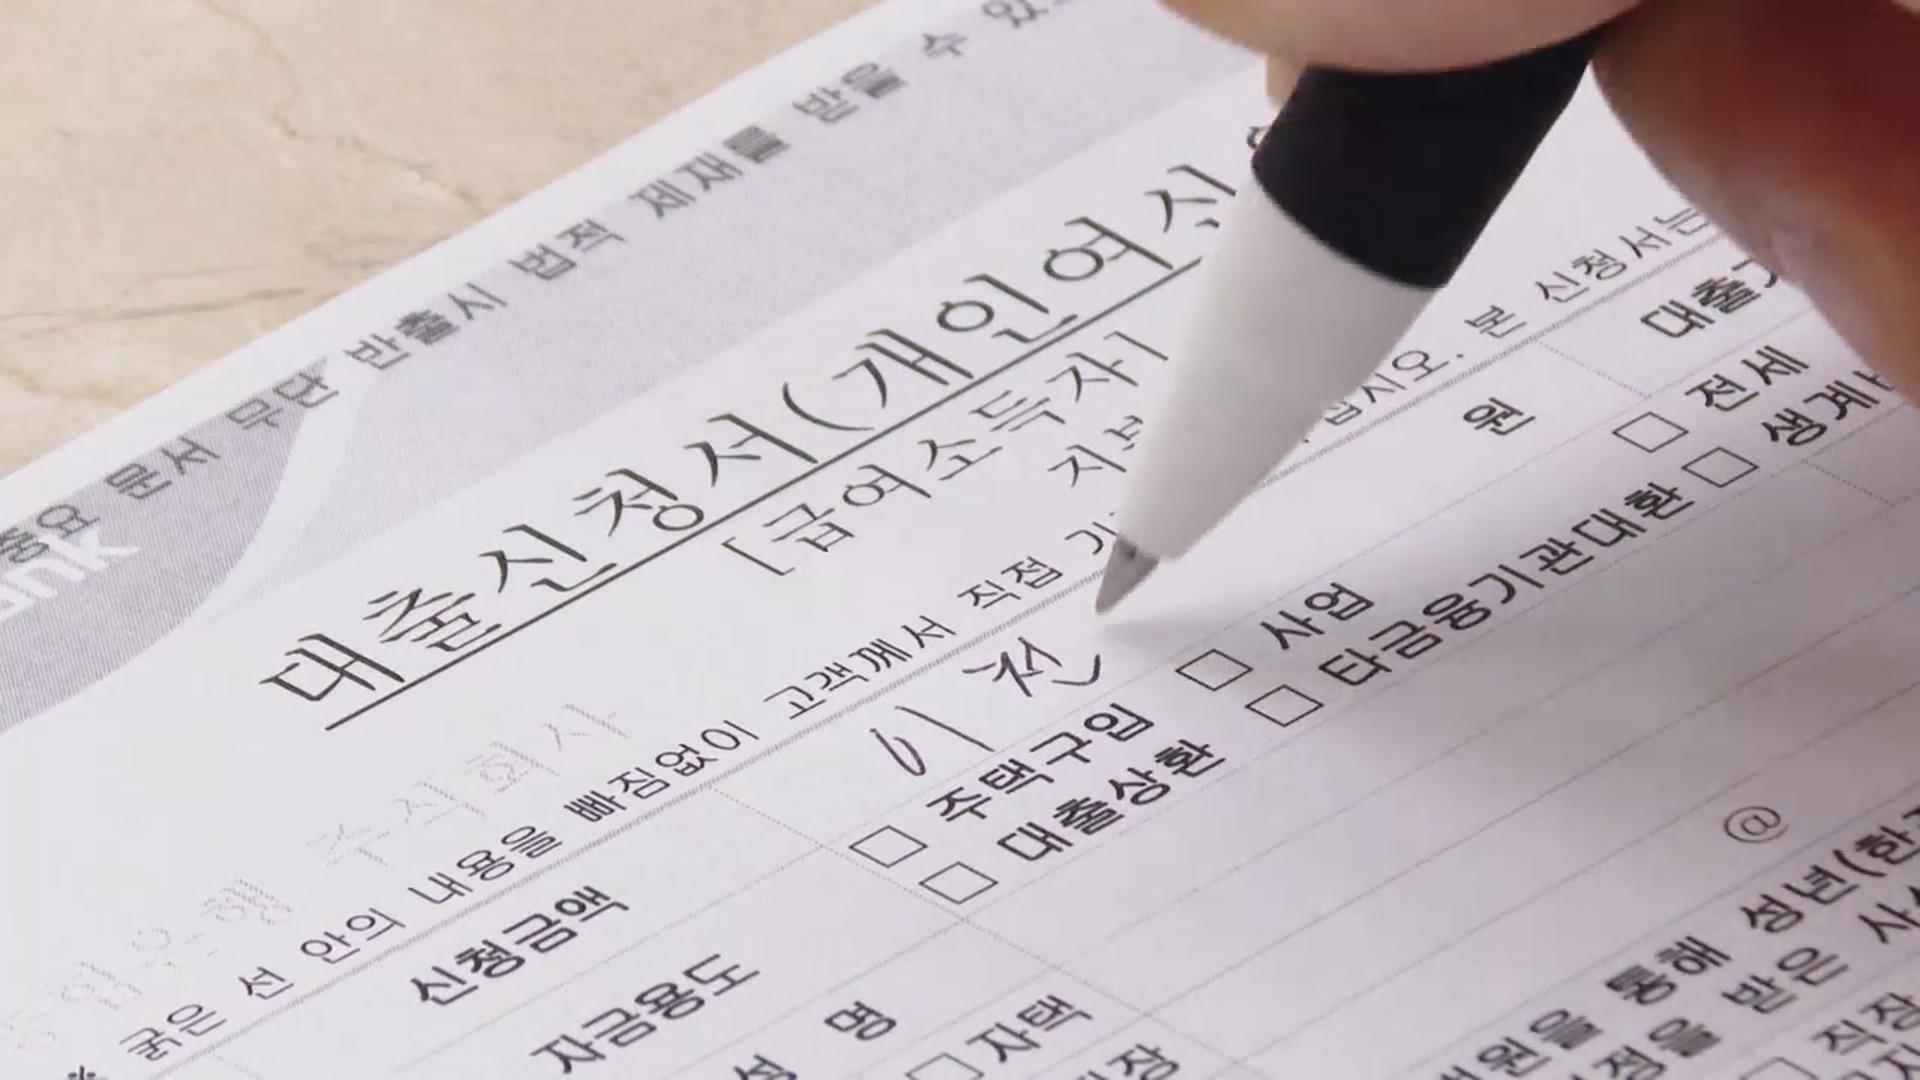 중요 문서 무단 반출시 법적 제재를 받을 수 있
ank
대출신청서(개인여신
[급여소득자]
주식회사
은행
※ 굵은 선 안의 내용을 빠짐없이 고객께서 직접 십시오. 본 신청서는
신청금액 이천 원
자금용도
□ 주택구입 □ 사업 □ 전세
□ 대출상환 □ 타금융기관대환 □ 생계
대출
성 명
@
□ 자택
통해 성년(한
받은
직장